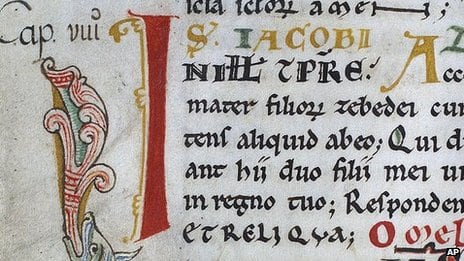 Cap. viii
I S. IACOBI
IN ILL TPRE: Acc
mater filioꝝ zebedei cu
tens aliquid abeo; Qui d
ant hii duo filii mei u
in regno tuo; Responden
ET RELIQVA;
AP